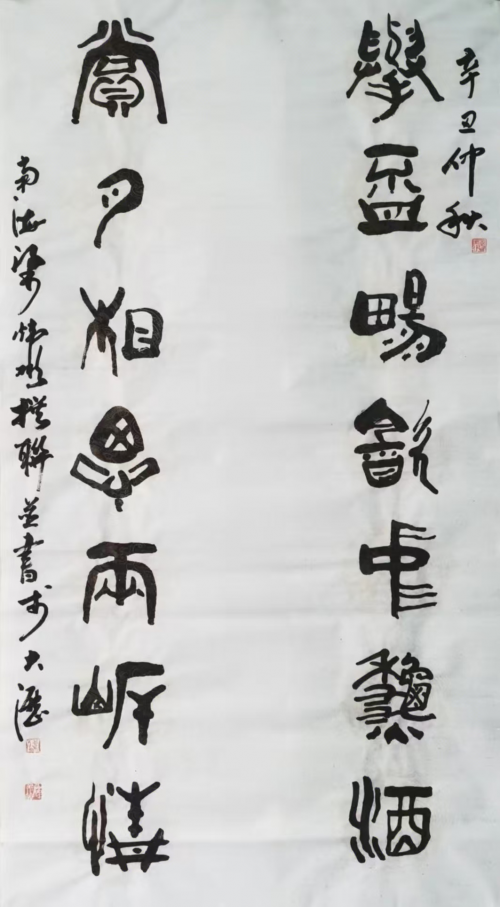 辛丑仲秋
舉盃暢飲中龝酒
賞月相思兩岸情
南海梁 撰聯並書於大瀝